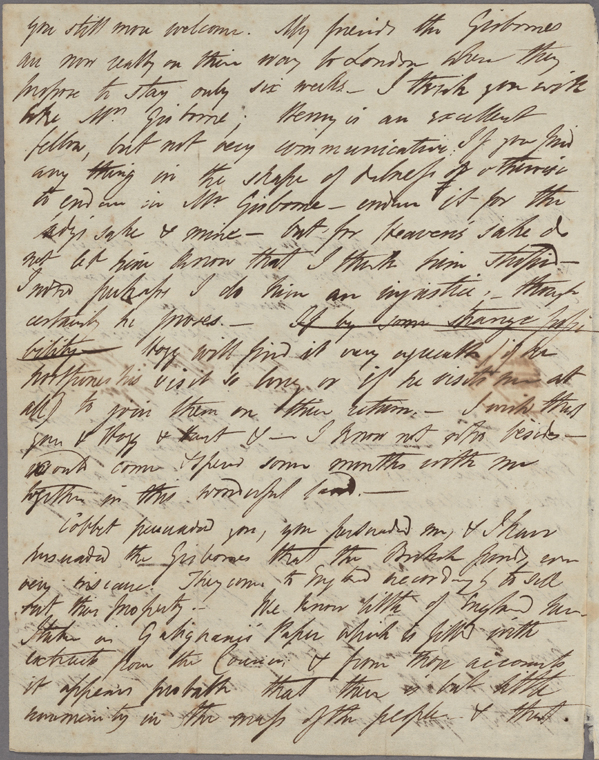 you still more welcome. My friends the Gisbornes
are now really on their way to London where they
propose to stay only six weeks — I think you will
like Mrs Gisborne; Henry is an excellent
fellow, but not very communicative. If you find
any thing in the shape of dulness or otherwise
to endure in Mr Gisborne — endure it for the
lady's sake & mine — but for Heavens sake do
not let him know that I think him stupid —
Indeed perhaps I do him an injustice, — though
certainly he proses. — If by some strange possi
bility — Hogg will find it very agreeable if he
postpones his visit so long or if he visits me at
all to join them on their return. — I wish that
you & Hogg & Hunt & — I know not who besides —
would come & spend some months with me
together in this wonderful land. —
Cobbet persuaded you, you persuaded me, & I have
persuaded the Gisbornes that the British funds are
very insecure. They come to England accordingly to sell
out their property. — We know little of England here
States in Galignani's Paper which is filled with
extracts from the Courier. & from those accounts
it appears probable that there is but little
unanimity in the mass of the people & that